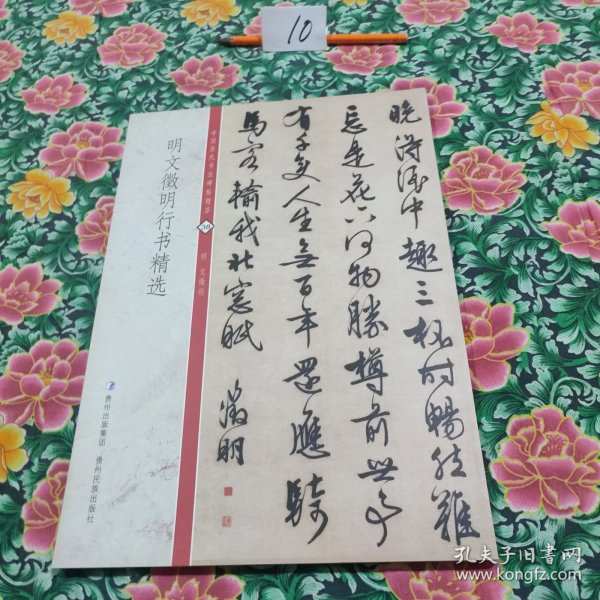 10
晚得酒中趣三杯时畅然难
忘是花下何物胜樽前世事
有千变人生无百年还应骑
马客输我北窗眠
徵明
中国历代书法碑帖精选
38
明 文徵明
明文徵明行书精选
贵州出版集团 贵州民族出版社
孔夫子旧书网
www.kongfz.com